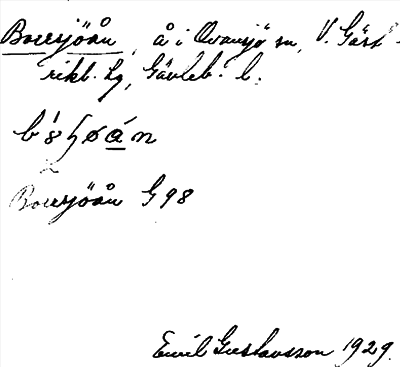 Borrsjöån, å i Ovansjö sn, V. Gäst-
rikl. hg, Gävleb. l.
Borrsjöån G98
Emil Gustavsson 1929.